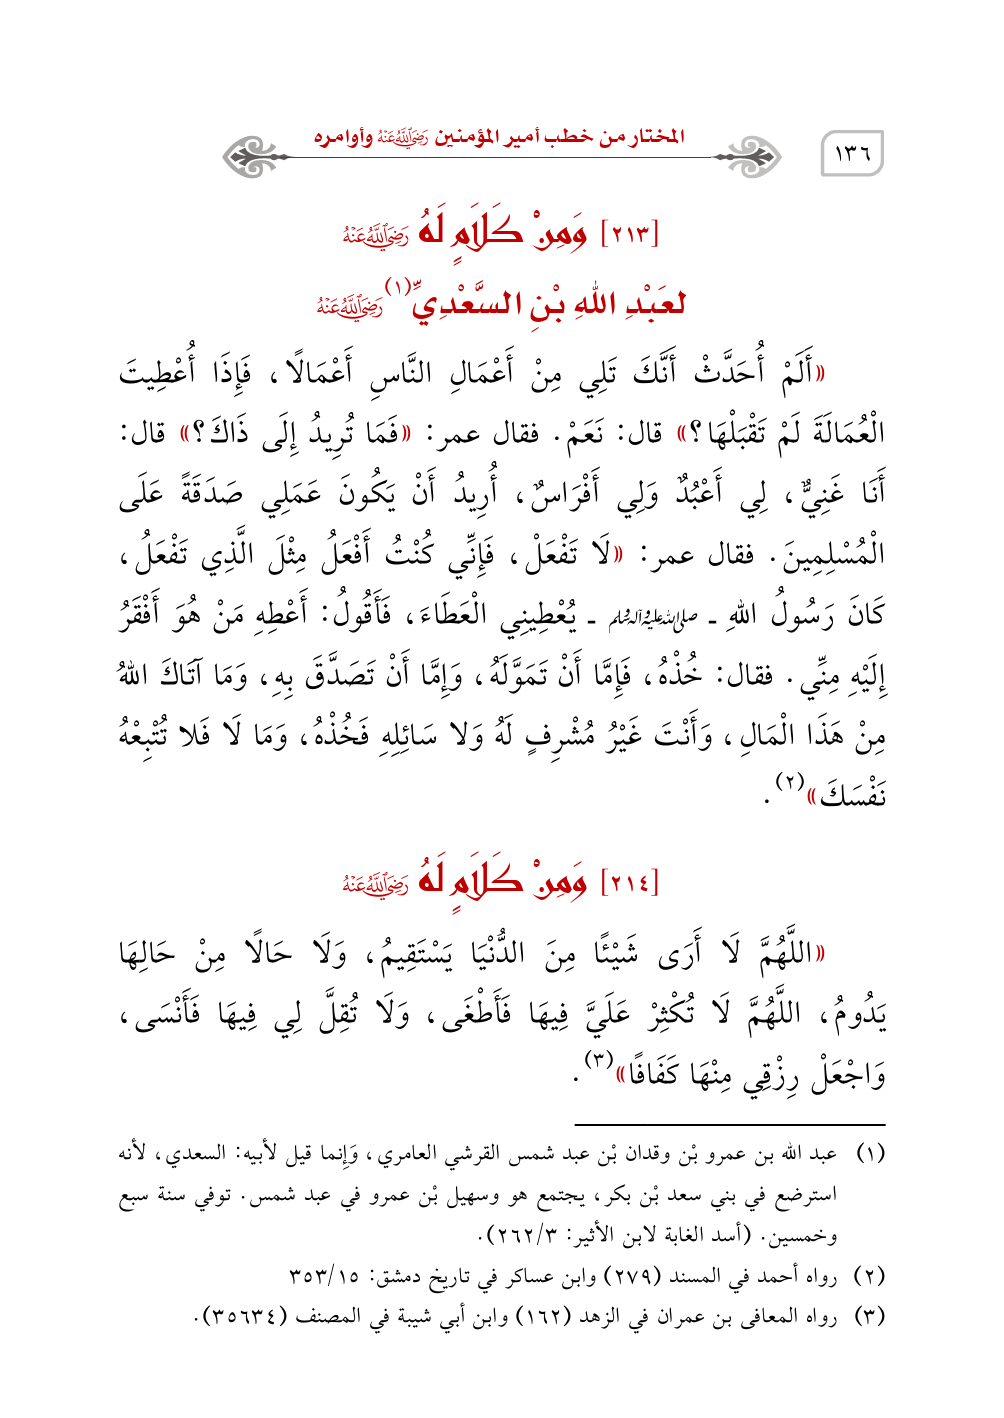 ١٣٦
المختار من خطب أمير المؤمنين رَضِيَ اللَّهُ عَنْهُ وأوامره
[٢١٣] وَمِنْ كَلَامٍ لَهُ رَضِيَ اللَّهُ عَنْهُ
لعَبْدِ اللهِ بْنِ السَّعْدِيِّ(١) رَضِيَ اللَّهُ عَنْهُ
«أَلَمْ أُحَدَّثْ أَنَّكَ تَلِي مِنْ أَعْمَالِ النَّاسِ أَعْمَالًا، فَإِذَا أُعْطِيتَ
الْعُمَالَةَ لَمْ تَقْبَلْهَا؟» قال: نَعَمْ. فقال عمر: «فَمَا تُرِيدُ إِلَى ذَاكَ؟» قال:
أَنَا غَنِيٌّ، لِي أَعْبُدٌ وَلِي أَفْرَاسٌ، أُرِيدُ أَنْ يَكُونَ عَمَلِي صَدَقَةً عَلَى
الْمُسْلِمِينَ. فقال عمر: «لَا تَفْعَلْ، فَإِنِّي كُنْتُ أَفْعَلُ مِثْلَ الَّذِي تَفْعَلُ،
كَانَ رَسُولُ اللهِ ـ صلى الله عليه وآله وسلم ـ يُعْطِينِي الْعَطَاءَ، فَأَقُولُ: أَعْطِهِ مَنْ هُوَ أَفْقَرُ
إِلَيْهِ مِنِّي. فقال: خُذْهُ، فَإِمَّا أَنْ تَمَوَّلَهُ، وَإِمَّا أَنْ تَصَدَّقَ بِهِ، وَمَا آتَاكَ اللهُ
مِنْ هَذَا الْمَالِ، وَأَنْتَ غَيْرُ مُشْرِفٍ لَهُ وَلا سَائِلِهِ فَخُذْهُ، وَمَا لَا فَلا تُتْبِعْهُ
نَفْسَكَ»(٢).
[٢١٤] وَمِنْ كَلَامٍ لَهُ رَضِيَ اللَّهُ عَنْهُ
«اللَّهُمَّ لَا أَرَى شَيْئًا مِنَ الدُّنْيَا يَسْتَقِيمُ، وَلَا حَالًا مِنْ حَالِهَا
يَدُومُ، اللَّهُمَّ لَا تُكْثِرْ عَلَيَّ فِيهَا فَأَطْغَى، وَلَا تُقِلَّ لِي فِيهَا فَأَنْسَى،
وَاجْعَلْ رِزْقِي مِنْهَا كَفَافًا»(٣).
(١) عبد الله بن عمرو بْن وقدان بْن عبد شمس القرشي العامري، وَإنما قيل لأبيه: السعدي، لأنه
استرضع في بني سعد بْن بكر، يجتمع هو وسهيل بْن عمرو في عبد شمس. توفي سنة سبع
وخمسين. (أسد الغابة لابن الأثير: ٢٦٢/٣).
(٢) رواه أحمد في المسند (٢٧٩) وابن عساكر في تاريخ دمشق: ٣٥٣/١٥
(٣) رواه المعافى بن عمران في الزهد (١٦٢) وابن أبي شيبة في المصنف (٣٥٦٣٤).